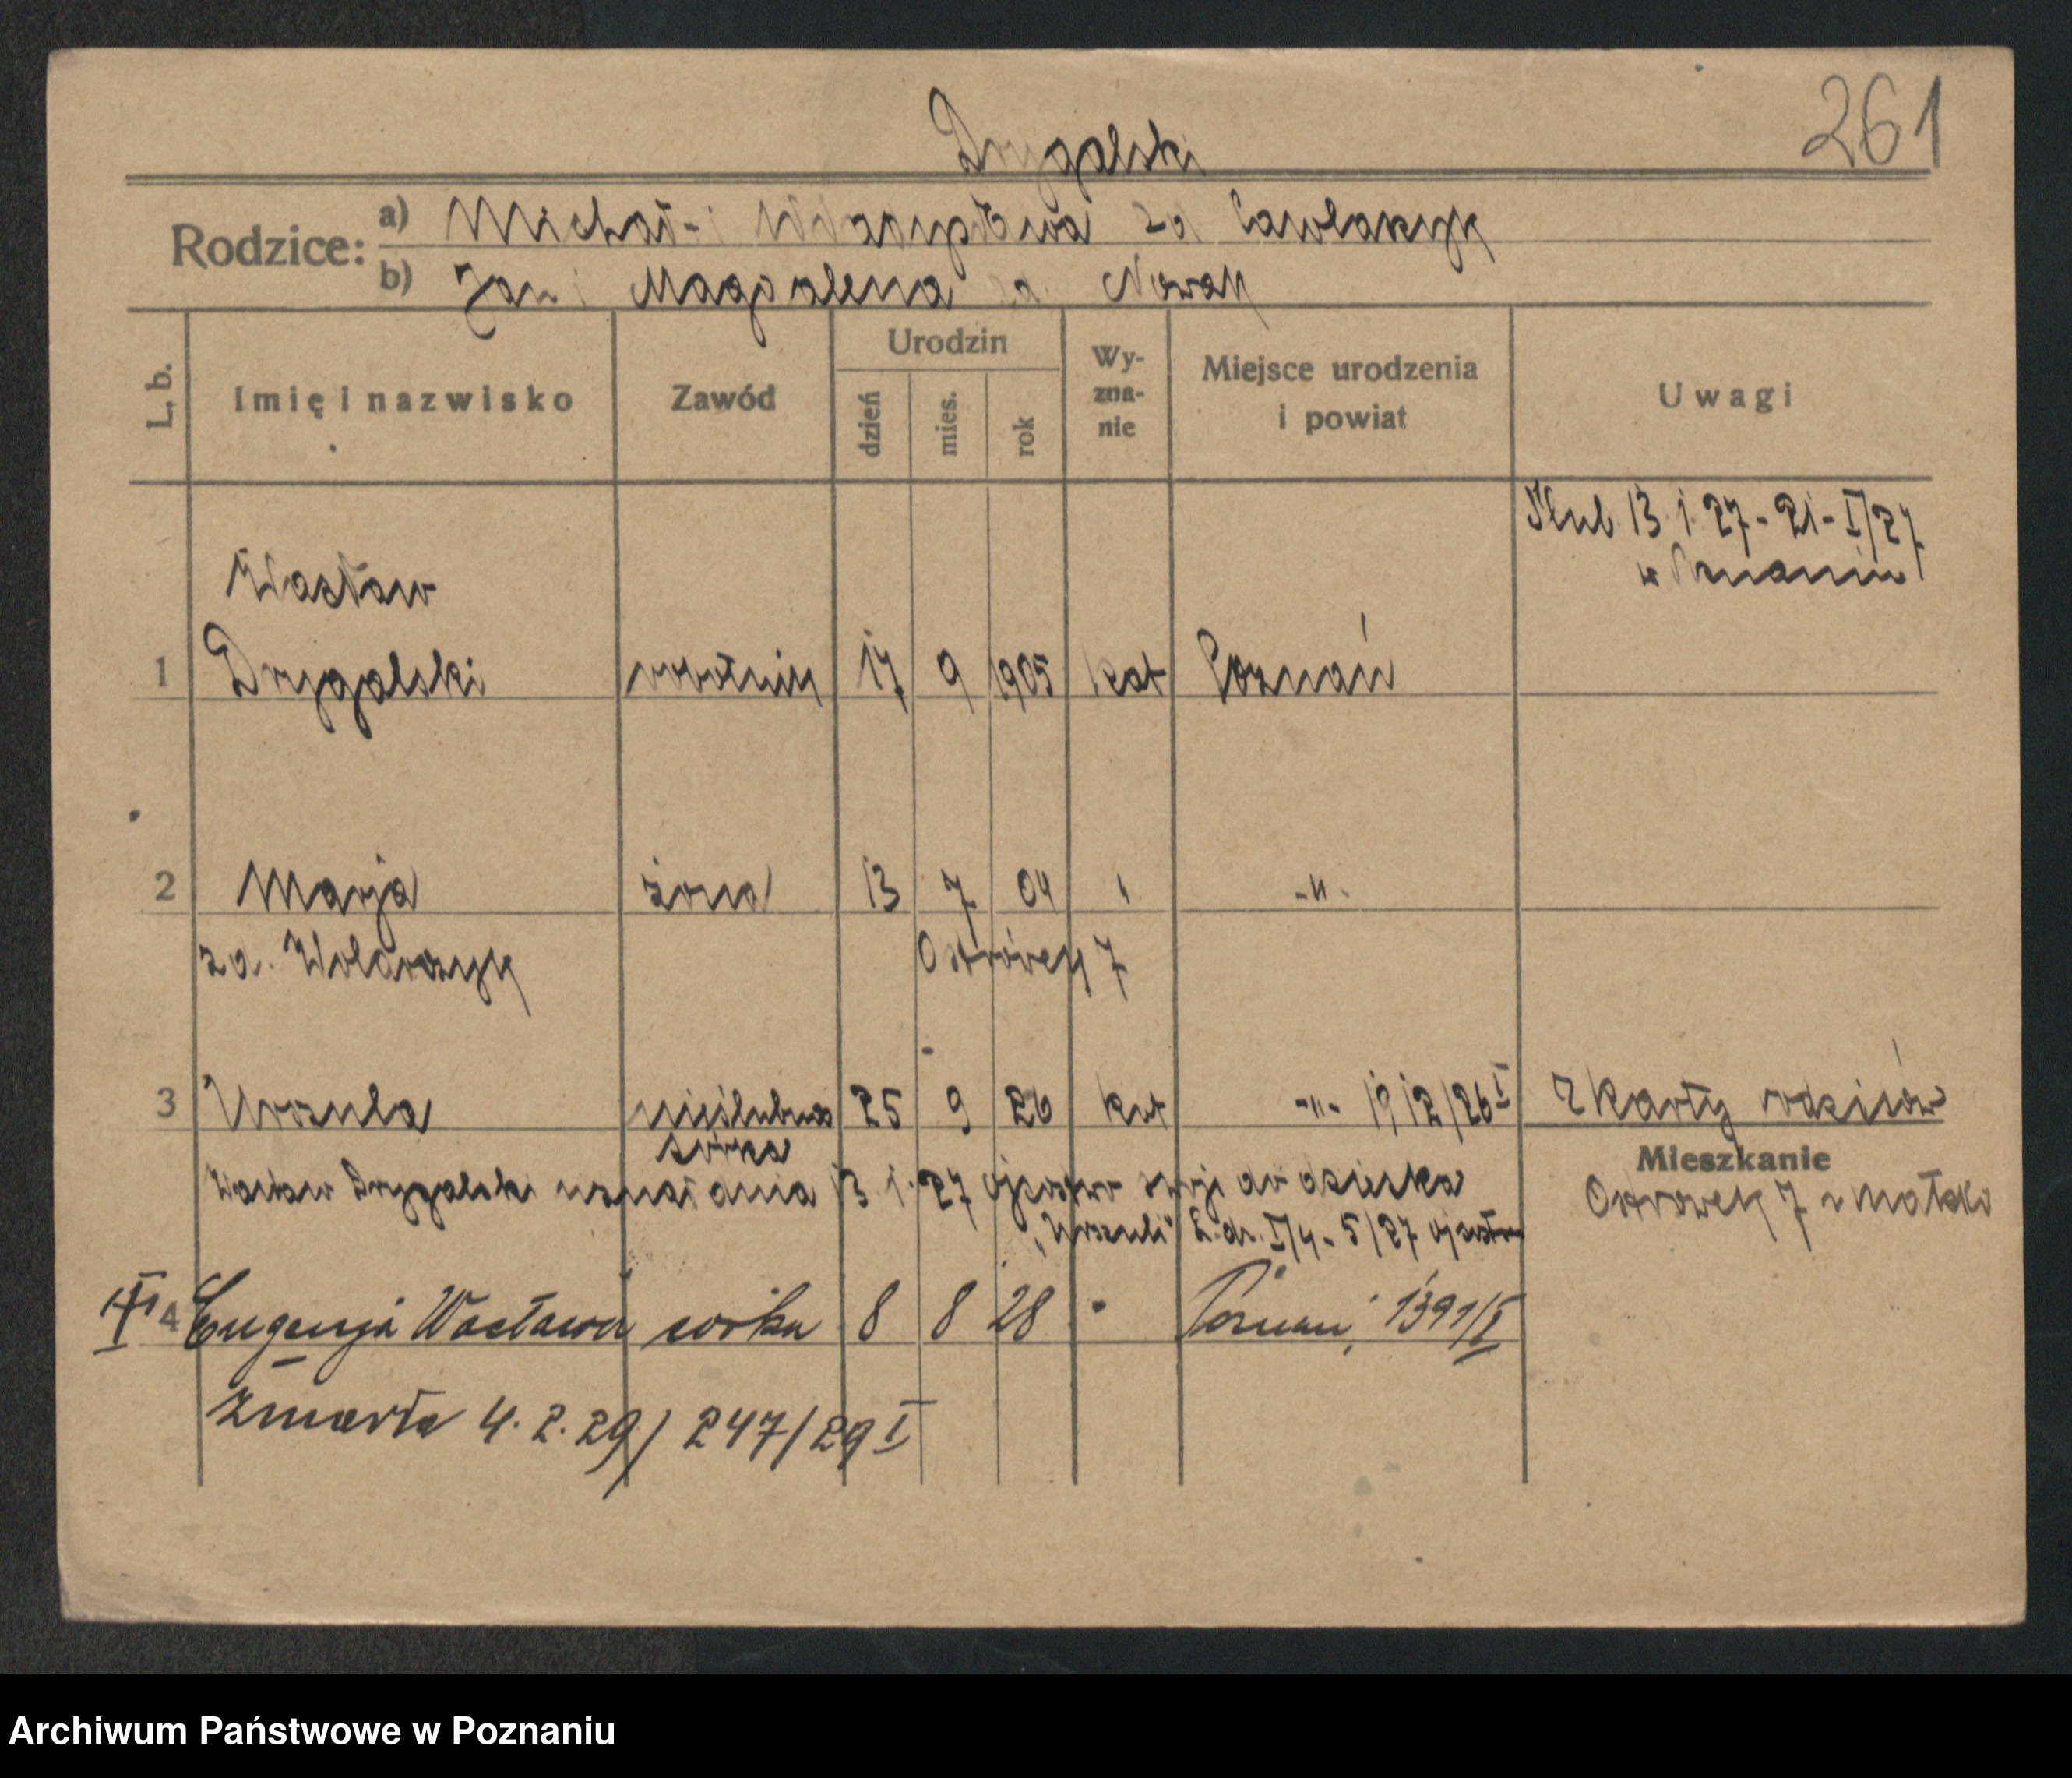 Drygalski
261
Rodzice:
a) Michał i zd Pawlaczyk
b) Jan i Magdalena zd. Nowak
L. b.
Imię i nazwisko
Zawód
Urodzin
dzień
mies.
rok
Wy-
zna-
nie
Miejsce urodzenia
i powiat
Uwagi
Ślub 13 1. 27 - 21 - I/27
w Poznaniu
Wacław
1 Drygalski robotnik 17 9 1905 kat Poznań
2 Marja żona 13 7 04 " -"-
zd. Wolarczyk Ostrówek 7
3 Urszula nieślubna 25 9 26 kat -"- 1912/26 I Z karty rodziców
córka
Mieszkanie
Wacław Drygalski uznał dnia 13. 1. 27 ojcostwo swoje do dziecka
Ostrówek 7 u Matski
"Urszuli" L. dz. I/4 - 5/27
4 Eugenja Wacława córka 8 8 28 " Poznań, 1391/I
Zmarła 4. 2. 29/ 247/29 I
Archiwum Państwowe w Poznaniu